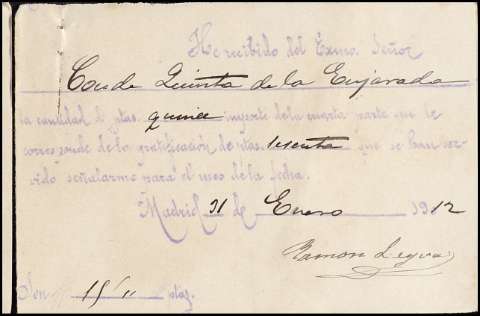 He recibido del Excmo. Señor
Conde Quinta de la Enjarada
la cantidad d ptas. quince importe de la cuarta parte que le
corresponde de la gratificación de ptas. sesenta que se han ser-
vido señalarme para el mes de la fecha.
Madrid 31 de Enero 1912
Ramon Leyva
Son 15 ptas.